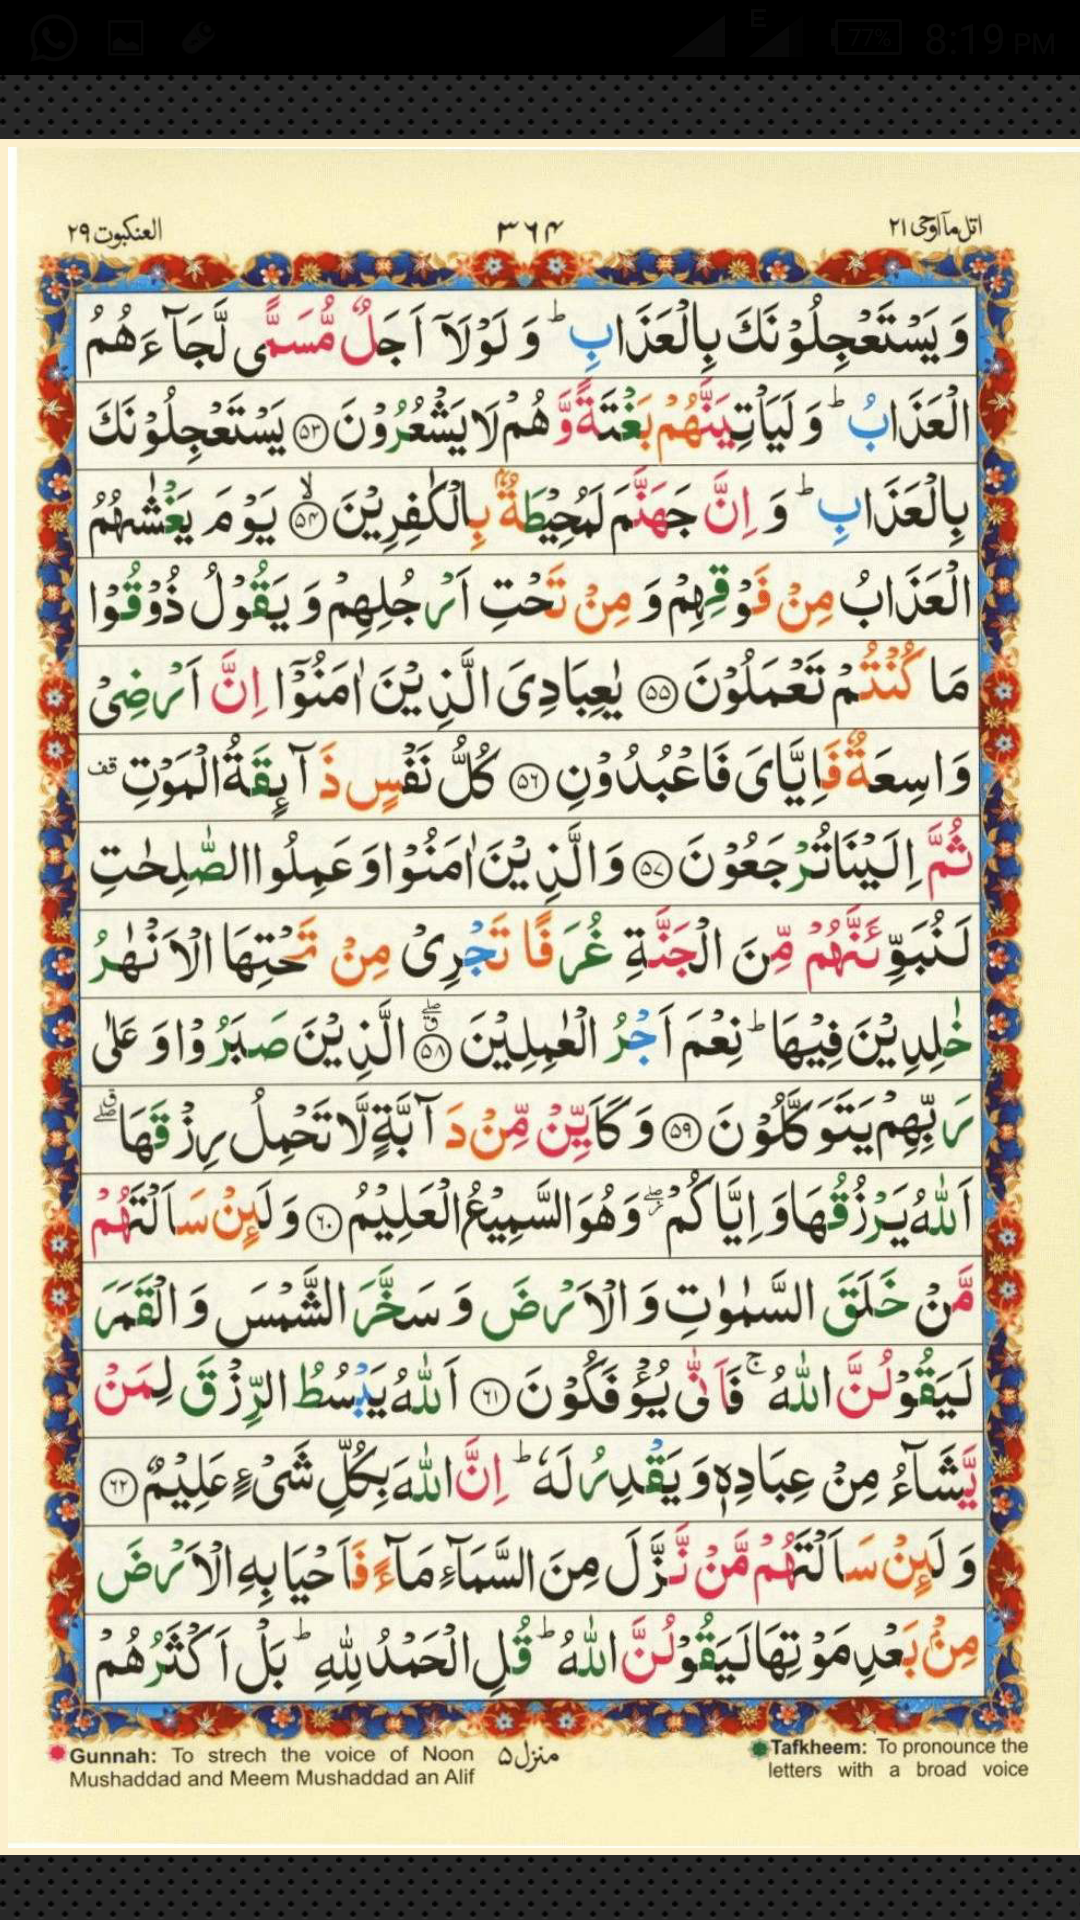 E 77% 8:19 PM
اتل مآ اوحی ۲۱ ۳۶۴ العنکبوت ۲۹
وَ یَسْتَعْجِلُوْنَكَ بِالْعَذَابِ ؕ وَ لَوْلَاۤ اَجَلٌ مُّسَمًّی لَّجَآءَهُمُ
الْعَذَابُ ؕ وَ لَیَاْتِیَنَّهُمْ بَغْتَةً وَّ هُمْ لَا یَشْعُرُوْنَ ﴿۵۳﴾ یَسْتَعْجِلُوْنَكَ
بِالْعَذَابِ ؕ وَ اِنَّ جَهَنَّمَ لَمُحِیْطَةٌۢ بِالْكٰفِرِیْنَ ﴿۵۴﴾ۙ یَوْمَ یَغْشٰىهُمُ
الْعَذَابُ مِنْ فَوْقِهِمْ وَ مِنْ تَحْتِ اَرْجُلِهِمْ وَ یَقُوْلُ ذُوْقُوْا
مَا كُنْتُمْ تَعْمَلُوْنَ ﴿۵۵﴾ یٰعِبَادِیَ الَّذِیْنَ اٰمَنُوْۤا اِنَّ اَرْضِیْ
وَاسِعَةٌ فَاِیَّایَ فَاعْبُدُوْنِ ﴿۵۶﴾ كُلُّ نَفْسٍ ذَآىِٕقَةُ الْمَوْتِ قف
ثُمَّ اِلَیْنَا تُرْجَعُوْنَ ﴿۵۷﴾ وَ الَّذِیْنَ اٰمَنُوْا وَ عَمِلُوا الصّٰلِحٰتِ
لَنُبَوِّئَنَّهُمْ مِّنَ الْجَنَّةِ غُرَفًا تَجْرِیْ مِنْ تَحْتِهَا الْاَنْهٰرُ
خٰلِدِیْنَ فِیْهَا ؕ نِعْمَ اَجْرُ الْعٰمِلِیْنَ ﴿۵۸﴾ۗۖ الَّذِیْنَ صَبَرُوْا وَ عَلٰی
رَبِّهِمْ یَتَوَكَّلُوْنَ ﴿۵۹﴾ وَ كَاَیِّنْ مِّنْ دَآبَّةٍ لَّا تَحْمِلُ رِزْقَهَا ۗۖ
اَللّٰهُ یَرْزُقُهَا وَ اِیَّاكُمْ ۖؗ وَ هُوَ السَّمِیْعُ الْعَلِیْمُ ﴿۶۰﴾ وَ لَىِٕنْ سَاَلْتَهُمْ
مَّنْ خَلَقَ السَّمٰوٰتِ وَ الْاَرْضَ وَ سَخَّرَ الشَّمْسَ وَ الْقَمَرَ
لَیَقُوْلُنَّ اللّٰهُ ۚ فَاَنّٰی یُؤْفَكُوْنَ ﴿۶۱﴾ اَللّٰهُ یَبْسُطُ الرِّزْقَ لِمَنْ
یَّشَآءُ مِنْ عِبَادِهٖ وَ یَقْدِرُ لَهٗ ؕ اِنَّ اللّٰهَ بِكُلِّ شَیْءٍ عَلِیْمٌ ﴿۶۲﴾
وَ لَىِٕنْ سَاَلْتَهُمْ مَّنْ نَّزَّلَ مِنَ السَّمَآءِ مَآءً فَاَحْیَا بِهِ الْاَرْضَ
مِنْۢ بَعْدِ مَوْتِهَا لَیَقُوْلُنَّ اللّٰهُ ؕ قُلِ الْحَمْدُ لِلّٰهِ ؕ بَلْ اَكْثَرُهُمْ
Gunnah: To strech the voice of Noon منزل ۵ Tafkheem: To pronounce the
Mushaddad and Meem Mushaddad an Alif letters with a broad voice